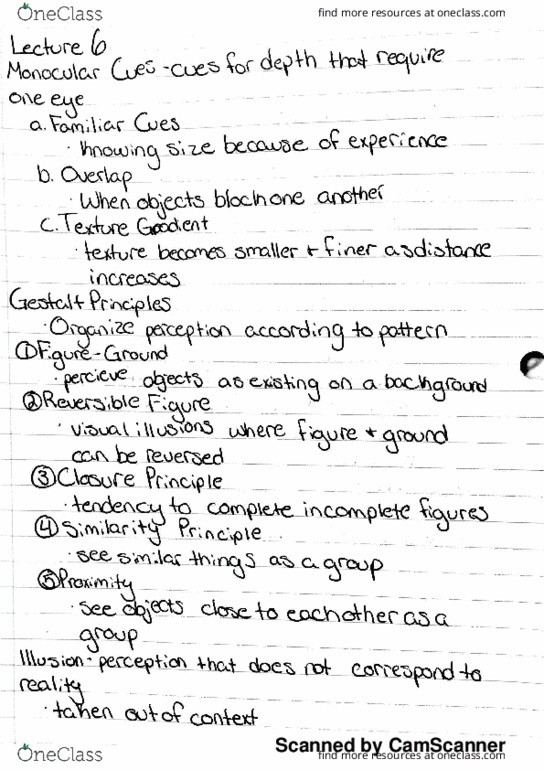 OneClass
find more resources at oneclass.com
Lecture 6
Monocular Cues - cues for depth that require
one eye
a. Familiar Cues
· knowing size because of experience
b. Overlap
· When objects block one another
c. Texture Gradient
· texture becomes smaller + finer as distance
increases
Gestalt Principles
· Organize perception according to pattern
① Figure-Ground
· percieve objects as existing on a background
② Reversible Figure
· visual illusions where figure + ground
can be reversed
③ Closure Principle
· tendency to complete incomplete figures
④ Similarity Principle
· see similar things as a group
⑤ Proximity
· see objects close to each other as a
group
Illusion - perception that does not correspond to
reality
· taken out of context
Scanned by CamScanner
OneClass
find more resources at oneclass.com